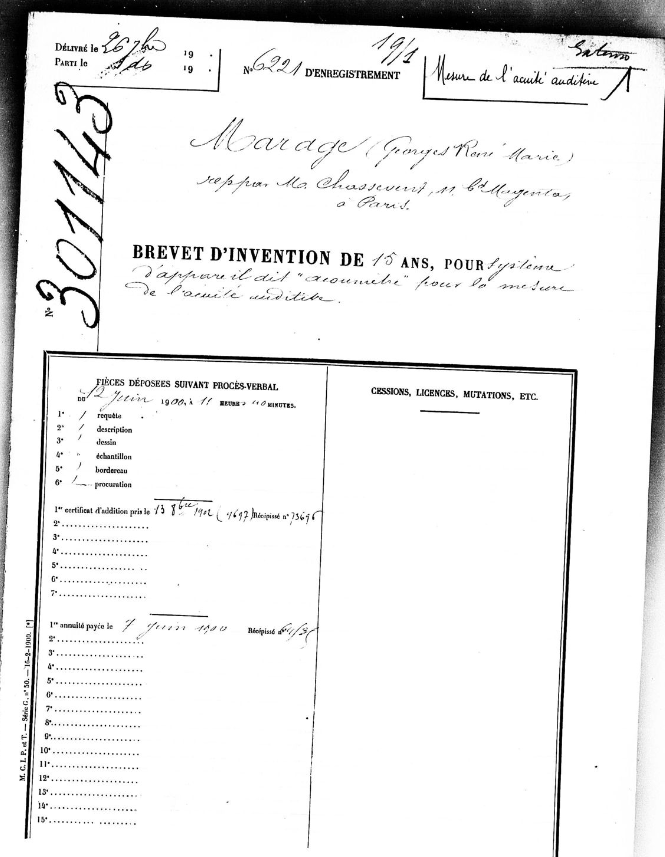 DÉLIVRÉ le 26 7bre 19 :
PARTI le do 19 :
N° 6221 D'ENREGISTREMENT
19/1
Mesure de l'acuité auditive
N° 301143
Marage (Georges René Marie)
rep par M. Chassevent, 11 Bd Magenta,
à Paris.
BREVET D'INVENTION DE 15 ANS, POUR Système
d'appareil dit "acoumètre" pour la mesure
de l'acuité auditive.
PIÈCES DÉPOSÉES SUIVANT PROCÈS-VERBAL
DU 12 Juin 1900, à 11 HEURES 40 MINUTES.
1° 1 requête
2° 1 description
3° 1 dessin
4° " échantillon
5° 1 bordereau
6° 1 procuration
1er certificat d'addition pris le 13 8bre 1902 (4697) Récipissé n° 73696
2e
3e
4e
5e
6e
7e
1re annuité payée le 7 Juin 1900 Récipissé n°
2e
3e
4e
5e
6e
7e
8e
9e
10e
11e
12e
13e
14e
15e
CESSIONS, LICENCES, MUTATIONS, ETC.
M. C. I. P. et T. — Série G, n° 50. — 15-2-1900. [*]